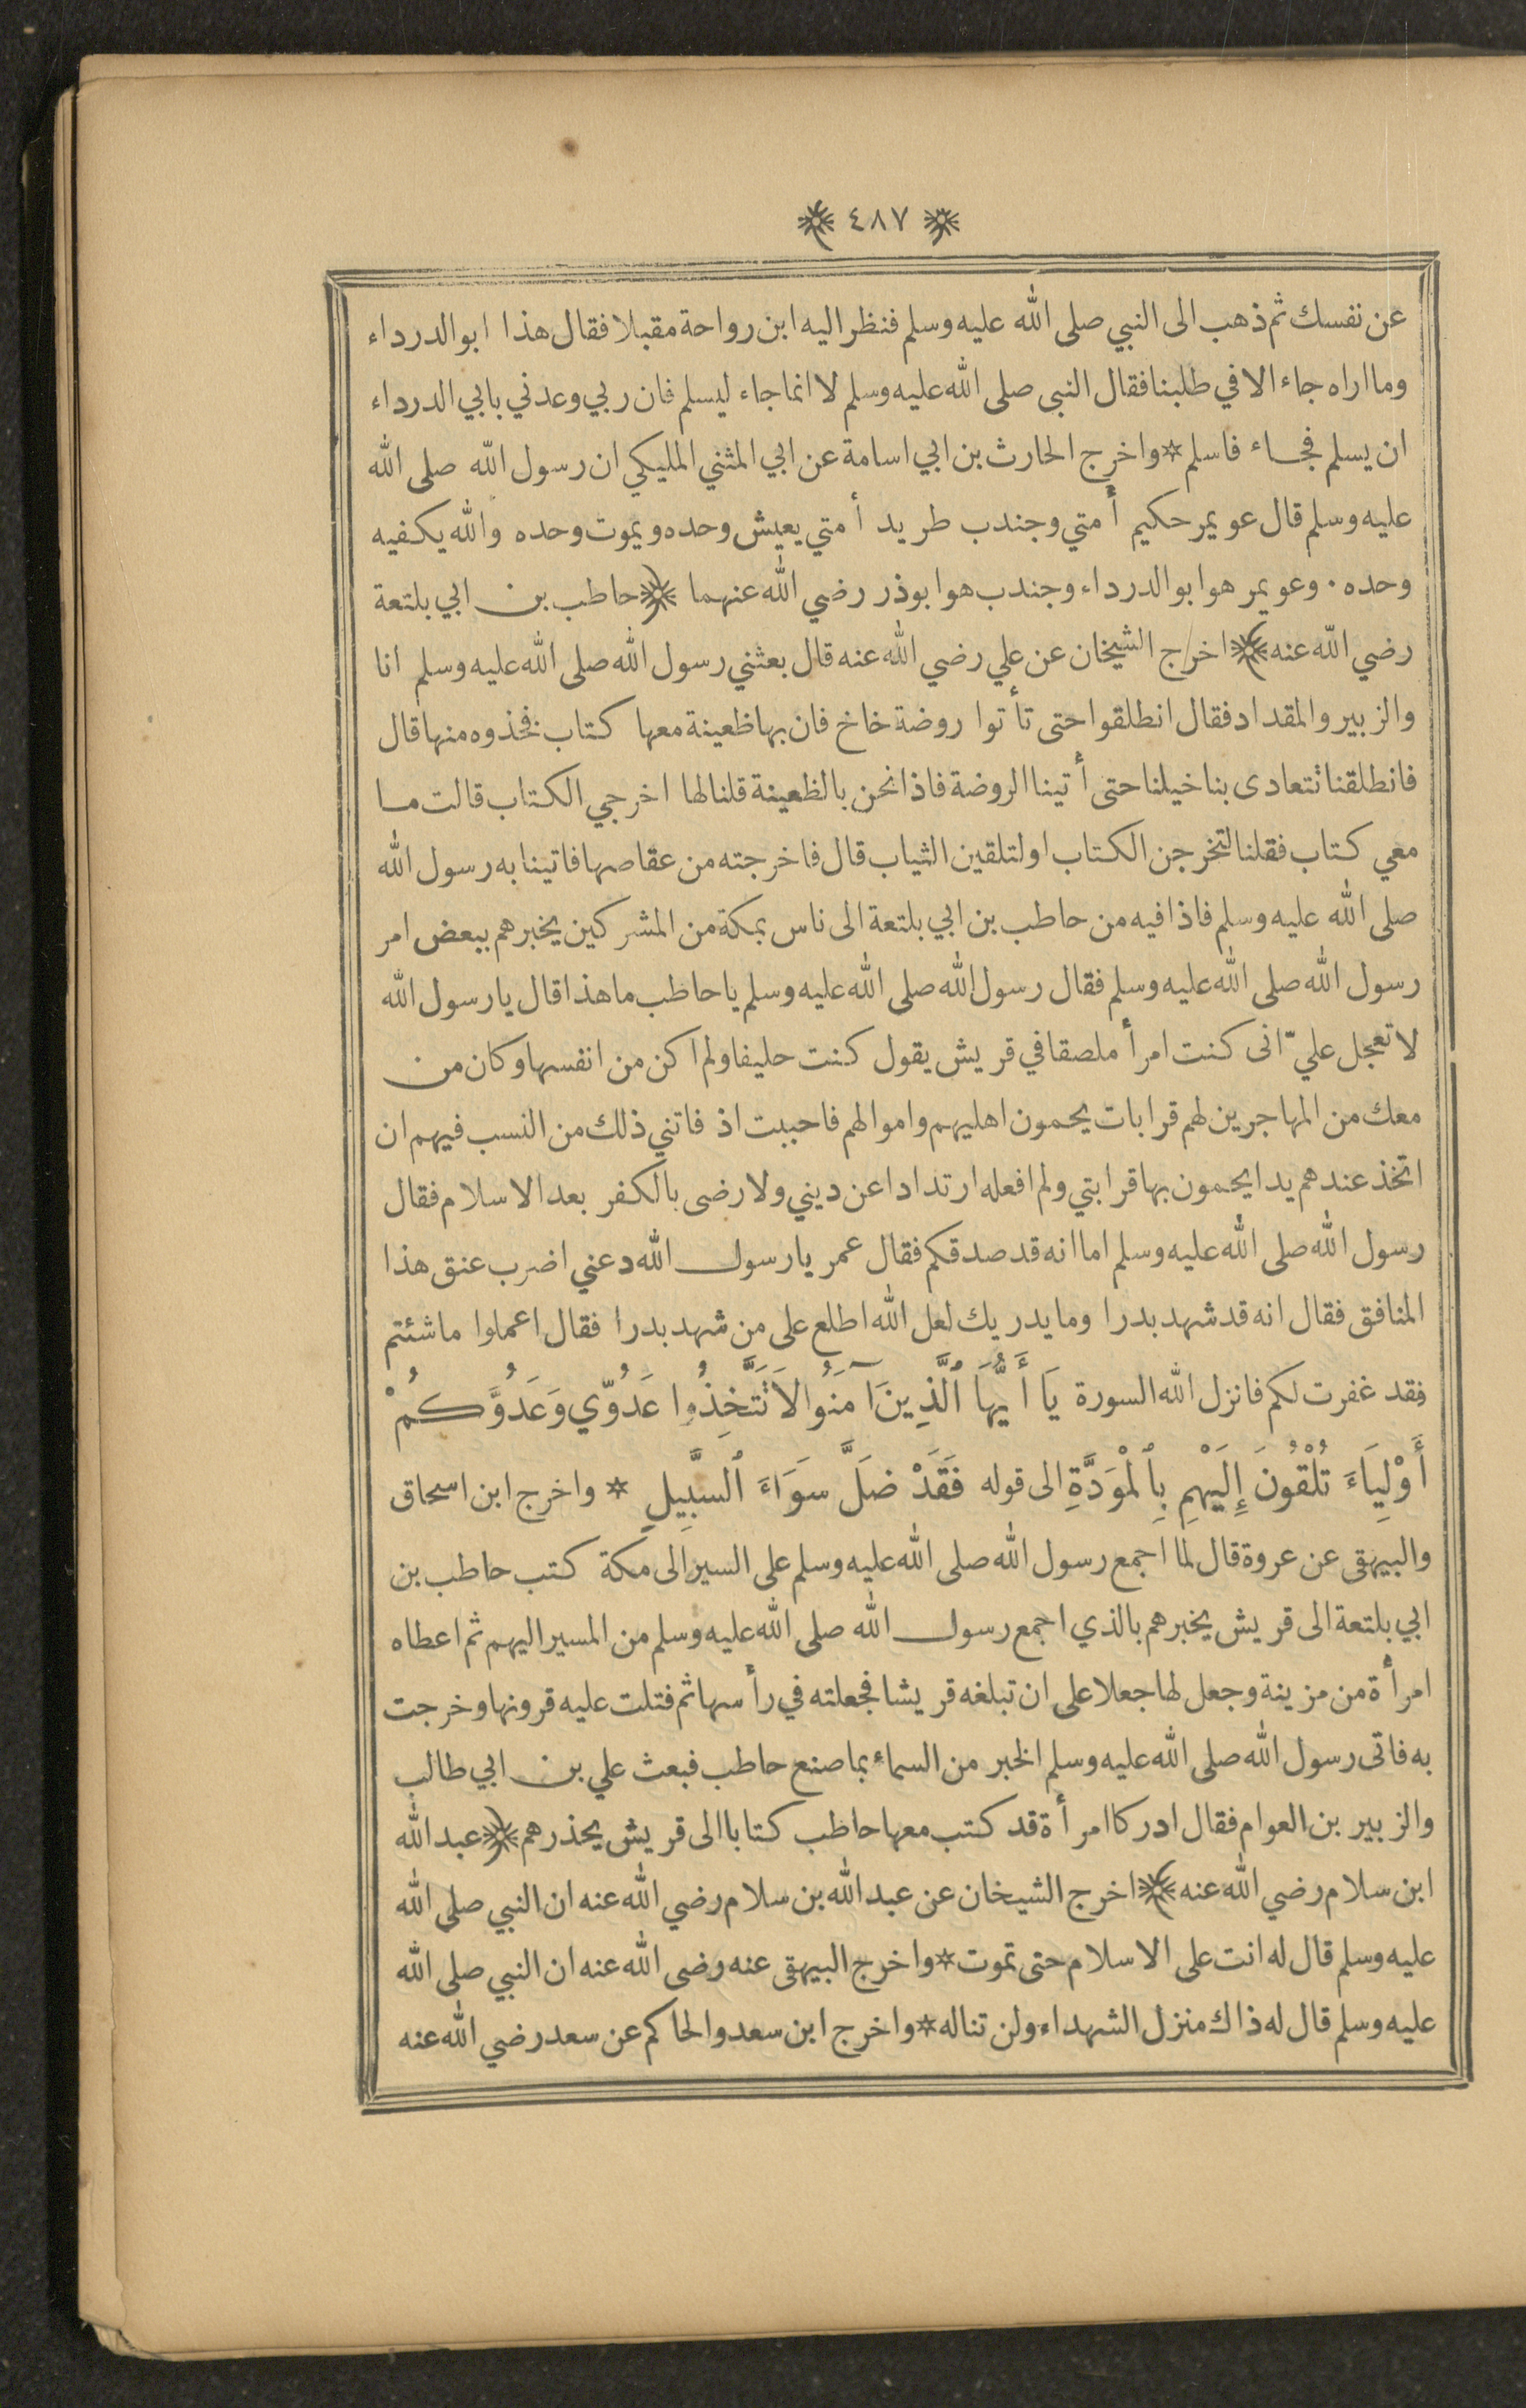 ﴿ ٤٨٧ ﴾
عن نفسك ثم ذهب الى النبي صلى الله عليه وسلم فنظر اليه ابن رواحة مقبلا فقال هذا ابو الدرداء
وما اراه جاء الا في طلبنا فقال النبى صلى الله عليه وسلم لا انما جاء ليسلم فان ربي وعدني بابي الدرداء
ان يسلم فجاء فاسلم * واخرج الحارث بن ابي اسامة عن ابي المثني المليكي ان رسول الله صلى الله
عليه وسلم قال عويمر حكيم أمتي وجندب طريد أمتي يعيش وحده ويموت وحده والله يكفيه
وحده ٠ وعويمر هو ابو الدرداء وجندب هو ابوذر رضي الله عنهما ﴿ حاطب بن ابي بلتعة
رضي الله عنه ﴾ اخرج الشيخان عن علي رضي الله عنه قال بعثني رسول الله صلى الله عليه وسلم انا
والزبير والمقداد فقال انطلقوا حتى تأتوا روضة خاخ فان بها ظعينة معها كتاب فخذوه منها قال
فانطلقنا نتعادى بنا خيلنا حتى أتينا الروضة فاذا نحن بالظعينة قلنا لها اخرجي الكتاب قالت ما
معي كتاب فقلنا لتخرجن الكتاب او لتلقين الثياب قال فاخرجته من عقاصها فاتينا به رسول الله
صلى الله عليه وسلم فاذا فيه من حاطب بن ابي بلتعة الى ناس بمكة من المشركين يخبرهم ببعض امر
رسول الله صلى الله عليه وسلم فقال رسول الله صلى الله عليه وسلم يا حاطب ما هذا قال يا رسول الله
لا تعجل عليّ انى كنت امرأ ملصقا في قريش يقول كنت حليفا ولم اكن من انفسها وكان من
معك من المهاجرين لهم قرابات يحمون اهليهم واموالهم فاحببت اذ فاتني ذلك من النسب فيهم ان
اتخذ عندهم يدا يحمون بها قرابتي ولم افعله ارتدادا عن ديني ولا رضى بالكفر بعد الاسلام فقال
رسول الله صلى الله عليه وسلم اما انه قد صدقكم فقال عمر يا رسول الله دعني اضرب عنق هذا
المنافق فقال انه قد شهد بدرا وما يدريك لعل الله اطلع على من شهد بدرا فقال اعملوا ما شئتم
فقد غفرت لكم فانزل الله السورة يَا أَيُّهَا ٱلَّذِينَ آمَنُوا لاَ تَتَّخِذُوا عَدُوِّي وَعَدُوَّكُمْ
أَوْلِيَاءَ تُلْقُونَ إِلَيْهِمِ بِٱلْمَوَدَّةِ الى قوله فَقَدْ ضَلَّ سَوَاءَ ٱلسَّبِيلِ * واخرج ابن اسحاق
والبيهقى عن عروة قال لما اجمع رسول الله صلى الله عليه وسلم على السير الى مكة كتب حاطب بن
ابي بلتعة الى قريش يخبرهم بالذي اجمع رسول الله صلى الله عليه وسلم من المسير اليهم ثم اعطاه
امرأة من مزينة وجعل لها جعلا على ان تبلغه قريشا فجعلته في رأسها ثم فتلت عليه قرونها وخرجت
به فاتى رسول الله صلى الله عليه وسلم الخبر من السماء بما صنع حاطب فبعث علي بن ابي طالب
والزبير بن العوام فقال ادركا امرأة قد كتب معها حاطب كتابا الى قريش يحذرهم ﴿ عبد الله
ابن سلام رضي الله عنه ﴾ اخرج الشيخان عن عبد الله بن سلام رضي الله عنه ان النبي صلى الله
عليه وسلم قال له انت على الاسلام حتى تموت * واخرج البيهقى عنه رضى الله عنه ان النبي صلى الله
عليه وسلم قال له ذاك منزل الشهداء ولن تناله * واخرج ابن سعد والحاكم عن سعد رضي الله عنه